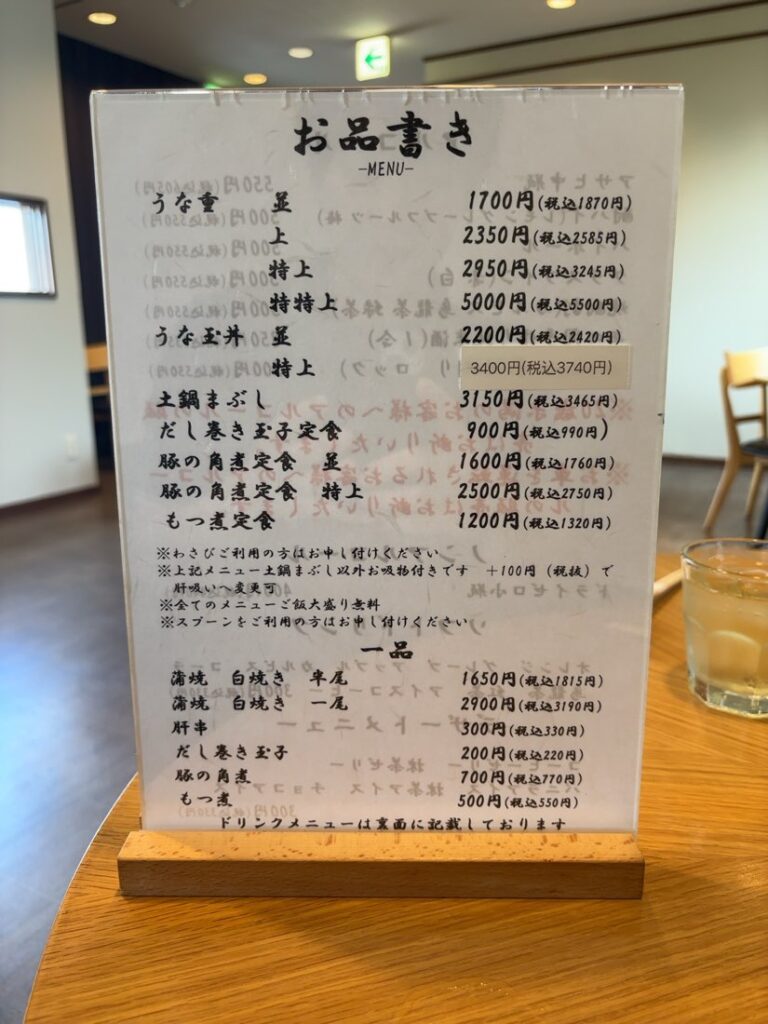 お品書き
-MENU-
うな重 並 1700円(税込1870円)
上 2350円(税込2585円)
特上 2950円(税込3245円)
特特上 5000円(税込5500円)
うな玉丼 並 2200円(税込2420円)
特上 3400円(税込3740円)
土鍋まぶし 3150円(税込3465円)
だし巻き玉子定食 900円(税込990円)
豚の角煮定食 並 1600円(税込1760円)
豚の角煮定食 特上 2500円(税込2750円)
もつ煮定食 1200円(税込1320円)
※わさびご利用の方はお申し付けください
※上記メニュー土鍋まぶし以外お吸物付きです +100円(税抜)で
肝吸いへ変更可
※全てのメニューご飯大盛り無料
※スプーンをご利用の方はお申し付けください
一品
蒲焼 白焼き 半尾 1650円(税込1815円)
蒲焼 白焼き 一尾 2900円(税込3190円)
肝串 300円(税込330円)
だし巻き玉子 200円(税込220円)
豚の角煮 700円(税込770円)
もつ煮 500円(税込550円)
ドリンクメニューは裏面に記載しております